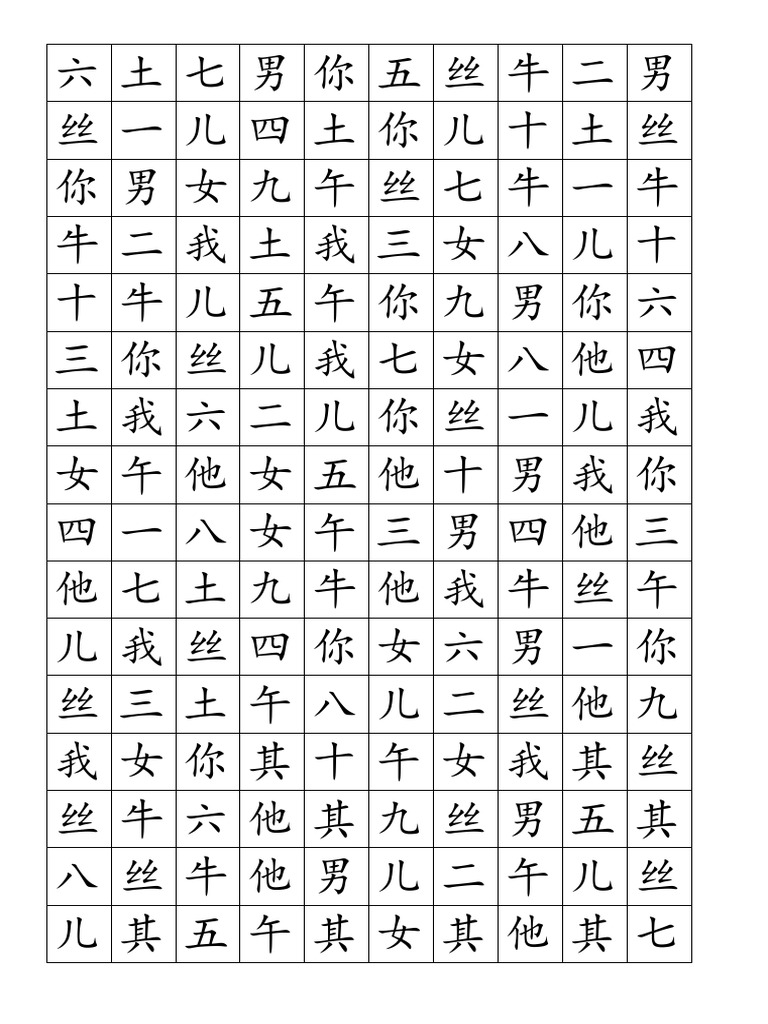 六 土 七 男 你 五 丝 牛 二 男
丝 一 儿 四 土 你 儿 十 土 丝
你 男 女 九 午 丝 七 牛 一 牛
牛 二 我 土 我 三 女 八 儿 十
十 牛 儿 五 午 你 九 男 你 六
三 你 丝 儿 我 七 女 八 他 四
土 我 六 二 儿 你 丝 一 儿 我
女 午 他 女 五 他 十 男 我 你
四 一 八 女 午 三 男 四 他 三
他 七 土 九 牛 他 我 牛 丝 午
儿 我 丝 四 你 女 六 男 一 你
丝 三 土 午 八 儿 二 丝 他 九
我 女 你 其 十 午 女 我 其 丝
丝 牛 六 他 其 九 丝 男 五 其
八 丝 牛 他 男 儿 二 午 儿 丝
儿 其 五 午 其 女 其 他 其 七